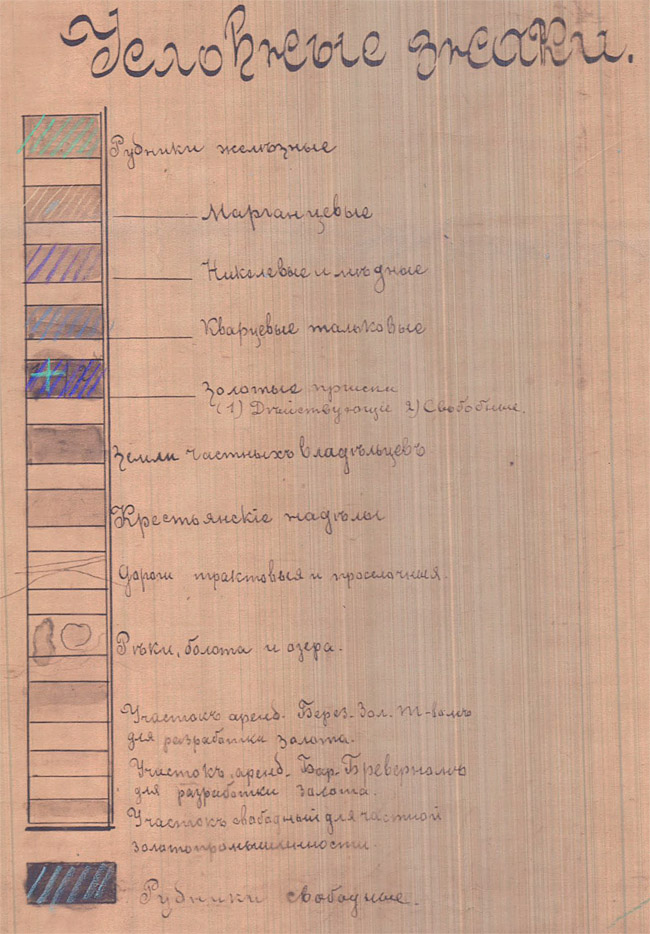 Условные знаки.
Рудники желѣзные
Марганцевые
Николевые и мѣдные
Кварцевые тальковые
Золотые прiиски
(1) Дѣйствующие 2) Свободные.
Земли частныхъ владѣльцевъ
Крестьянскiе надѣлы
Дороги трактовыя и проселочныя.
Рѣки, болота и озера.
Участокъ аренд. Берез. Зол. Т-вомъ
для разработки золота.
Участокъ аренд. Бар. Бреверномъ
для разработки золота.
Участокъ свободный для частной
золотопромышленности
Рудники свободные.